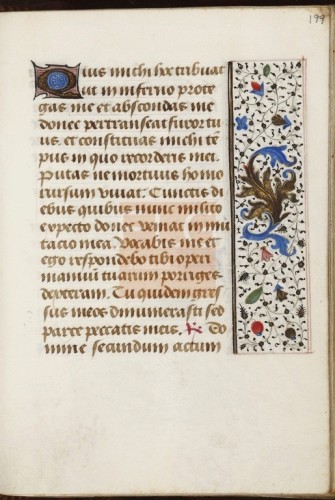 199
Quis michi hoc tribuat
ut in inferno prote
gas me et abscondas me
donec pertranseat furor tu
us. et constituas michi tẽ
pus in quo recorderis mei.
Putas ne mortuus homo
rursum vivat. Cunctis di
ebus quibus nunc milito
expecto donec veniat īmu
tacio mea. Vocabis me et
ego respondebo tibi operi
manuū tuarum porriges
dexteram. Tu quidem gres
sus meos dinumerasti sed
parce peccatis meis. Do
mine secundum actum